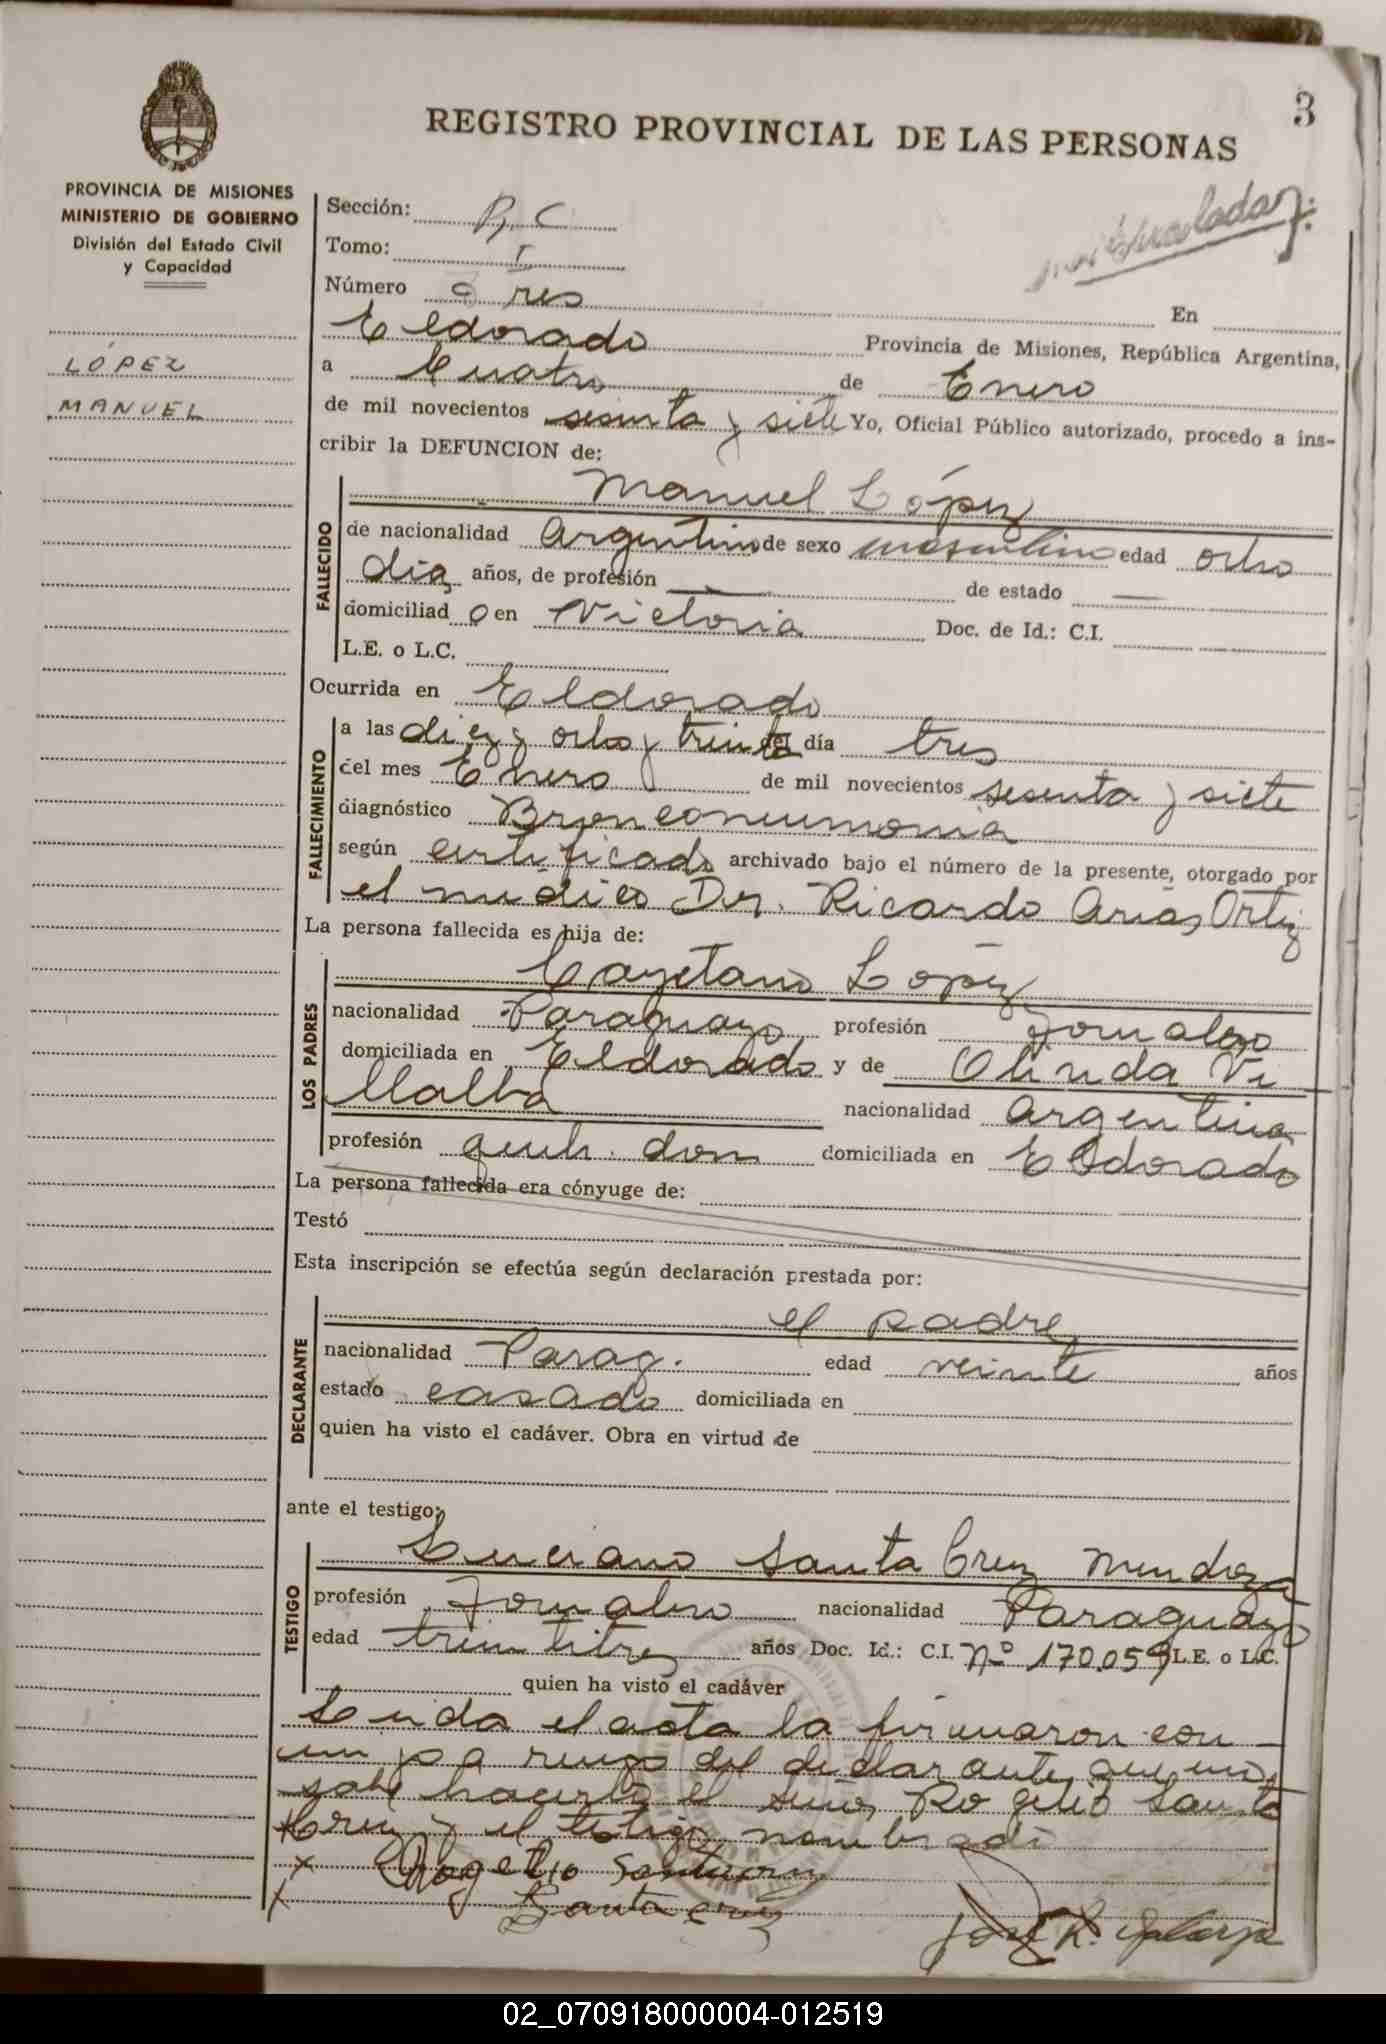 3
REGISTRO PROVINCIAL DE LAS PERSONAS
PROVINCIA DE MISIONES
MINISTERIO DE GOBIERNO
División del Estado Civil
y Capacidad
LÓPEZ
MANUEL
Sección:
Tomo: I
Número Tres En
Eldorado Provincia de Misiones, República Argentina,
a Cuatro de Enero
de mil novecientos sesenta y siete Yo, Oficial Público autorizado, procedo a ins-
cribir la DEFUNCION de:
FALLECIDO
Manuel López
de nacionalidad Argentino de sexo masculino edad ocho
días años, de profesión — de estado —
domiciliad o en Victoria Doc. de Id.: C.I.
L.E. o L.C.
Ocurrida en Eldorado
FALLECIMIENTO
a las diez y ocho y treinta del día tres
del mes Enero de mil novecientos sesenta y siete
diagnóstico Bronconeumonia
según certificado archivado bajo el número de la presente, otorgado por
el médico Dr. Ricardo Arias Ortiz
La persona fallecida es hija de:
LOS PADRES
Cayetano López
nacionalidad Paraguayo profesión Jornalero
domiciliada en Eldorado y de Olinda Vi
llalba nacionalidad argentina
profesión dom domiciliada en Eldorado
La persona fallecida era cónyuge de:
Testó
Esta inscripción se efectúa según declaración prestada por:
DECLARANTE
el padre
nacionalidad Parag. edad veinte años
estado casado domiciliada en
quien ha visto el cadáver. Obra en virtud de
ante el testigo:
TESTIGO
Luciano Santa Cruz Mendoza
profesión Jornalero nacionalidad Paraguayo
edad treintitres años Doc. Id.: C.I. Nº 170.059 L.E. o L.C.
quien ha visto el cadáver
Leida el acta la firmaron con
un a ruego del declarante que no
sabe hacerlo el señor Rogelio Santa
Cruz y el testigo nombrado
x Rogelio Santacruz
x Santa Cruz
02_070918000004-012519